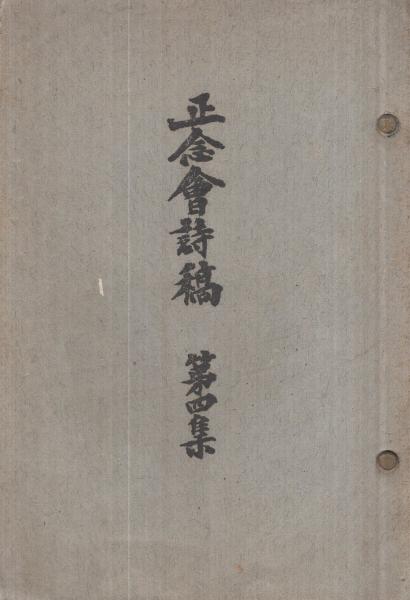 正念會詩稿 第四集